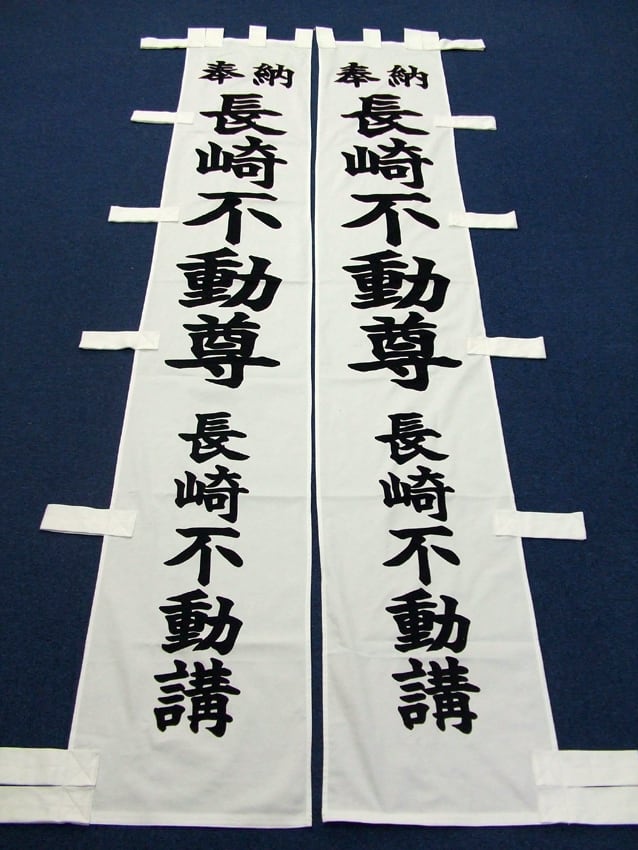 奉納
長崎不動尊
長崎不動講
奉納
長崎不動尊
長崎不動講